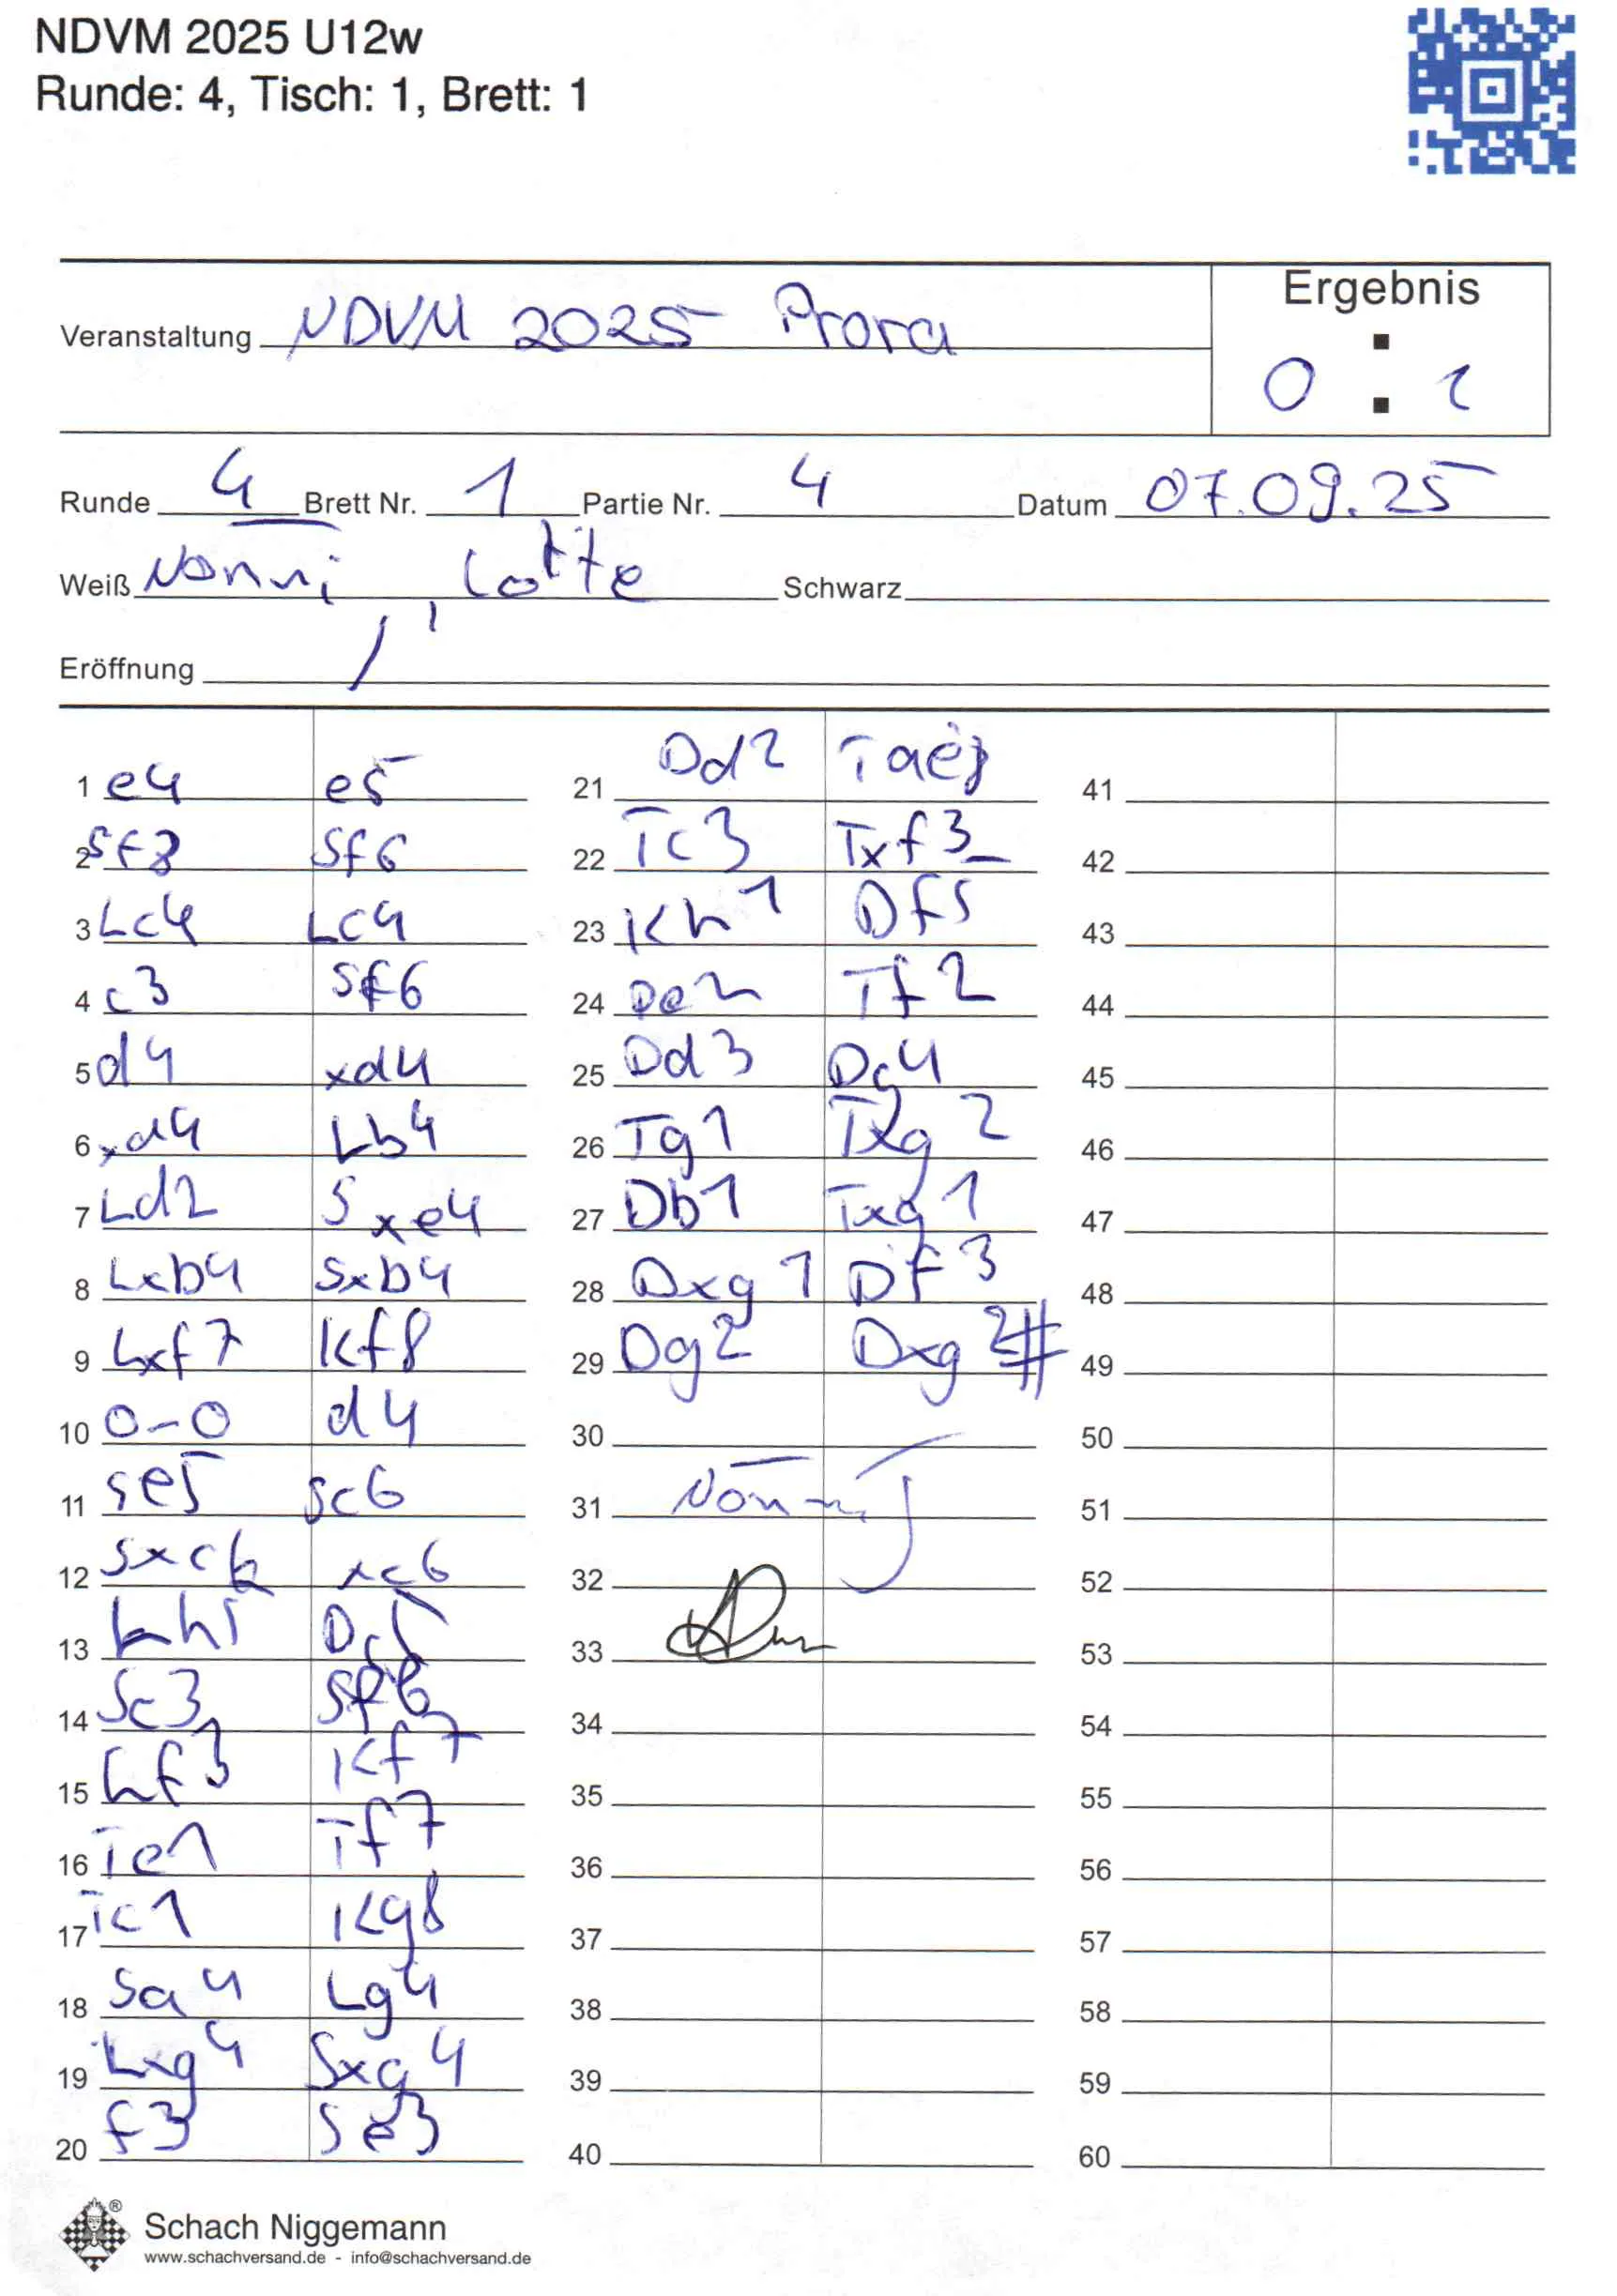 NDVM 2025 U12w
Runde: 4, Tisch: 1, Brett: 1
Ergebnis
Veranstaltung NDVM 2025 Prora
0 : 1
Runde 4 Brett Nr. 1 Partie Nr. 4 Datum 07.09.25
Weiß Nonni, Lotte Schwarz
Eröffnung /
1 e4 e5
2 Sf3 Sf6
3 Lc4 Lc4
4 c3 Sf6
5 d4 xd4
6 xd4 Lb4
7 Ld2 Sxe4
8 Lxb4 Sxb4
9 Lxf7 Kf8
10 0-0 d4
11 Se5 Sc6
12 Sxc6 xc6
13 Lh5
14 Sc3 Sf6
15 Lf3 Kf7
16 Te1 Tf7
17 Tc1 Kg8
18 Sa4 Lg4
19 Lxg4 Sxg4
20 f3 Se3
21 Dd2
22 Tc3 Txf3
23 Kh1 Df5
24 De2 Tf2
25 Dd3 Dg4
26 Tg1 Txg2
27 Db1 Txg1
28 Dxg1 Df3
29 Dg2 Dxg2#
30
31 Nonni
32
33
34
35
36
37
38
39
40
41
42
43
44
45
46
47
48
49
50
51
52
53
54
55
56
57
58
59
60
Schach Niggemann
www.schachversand.de - info@schachversand.de